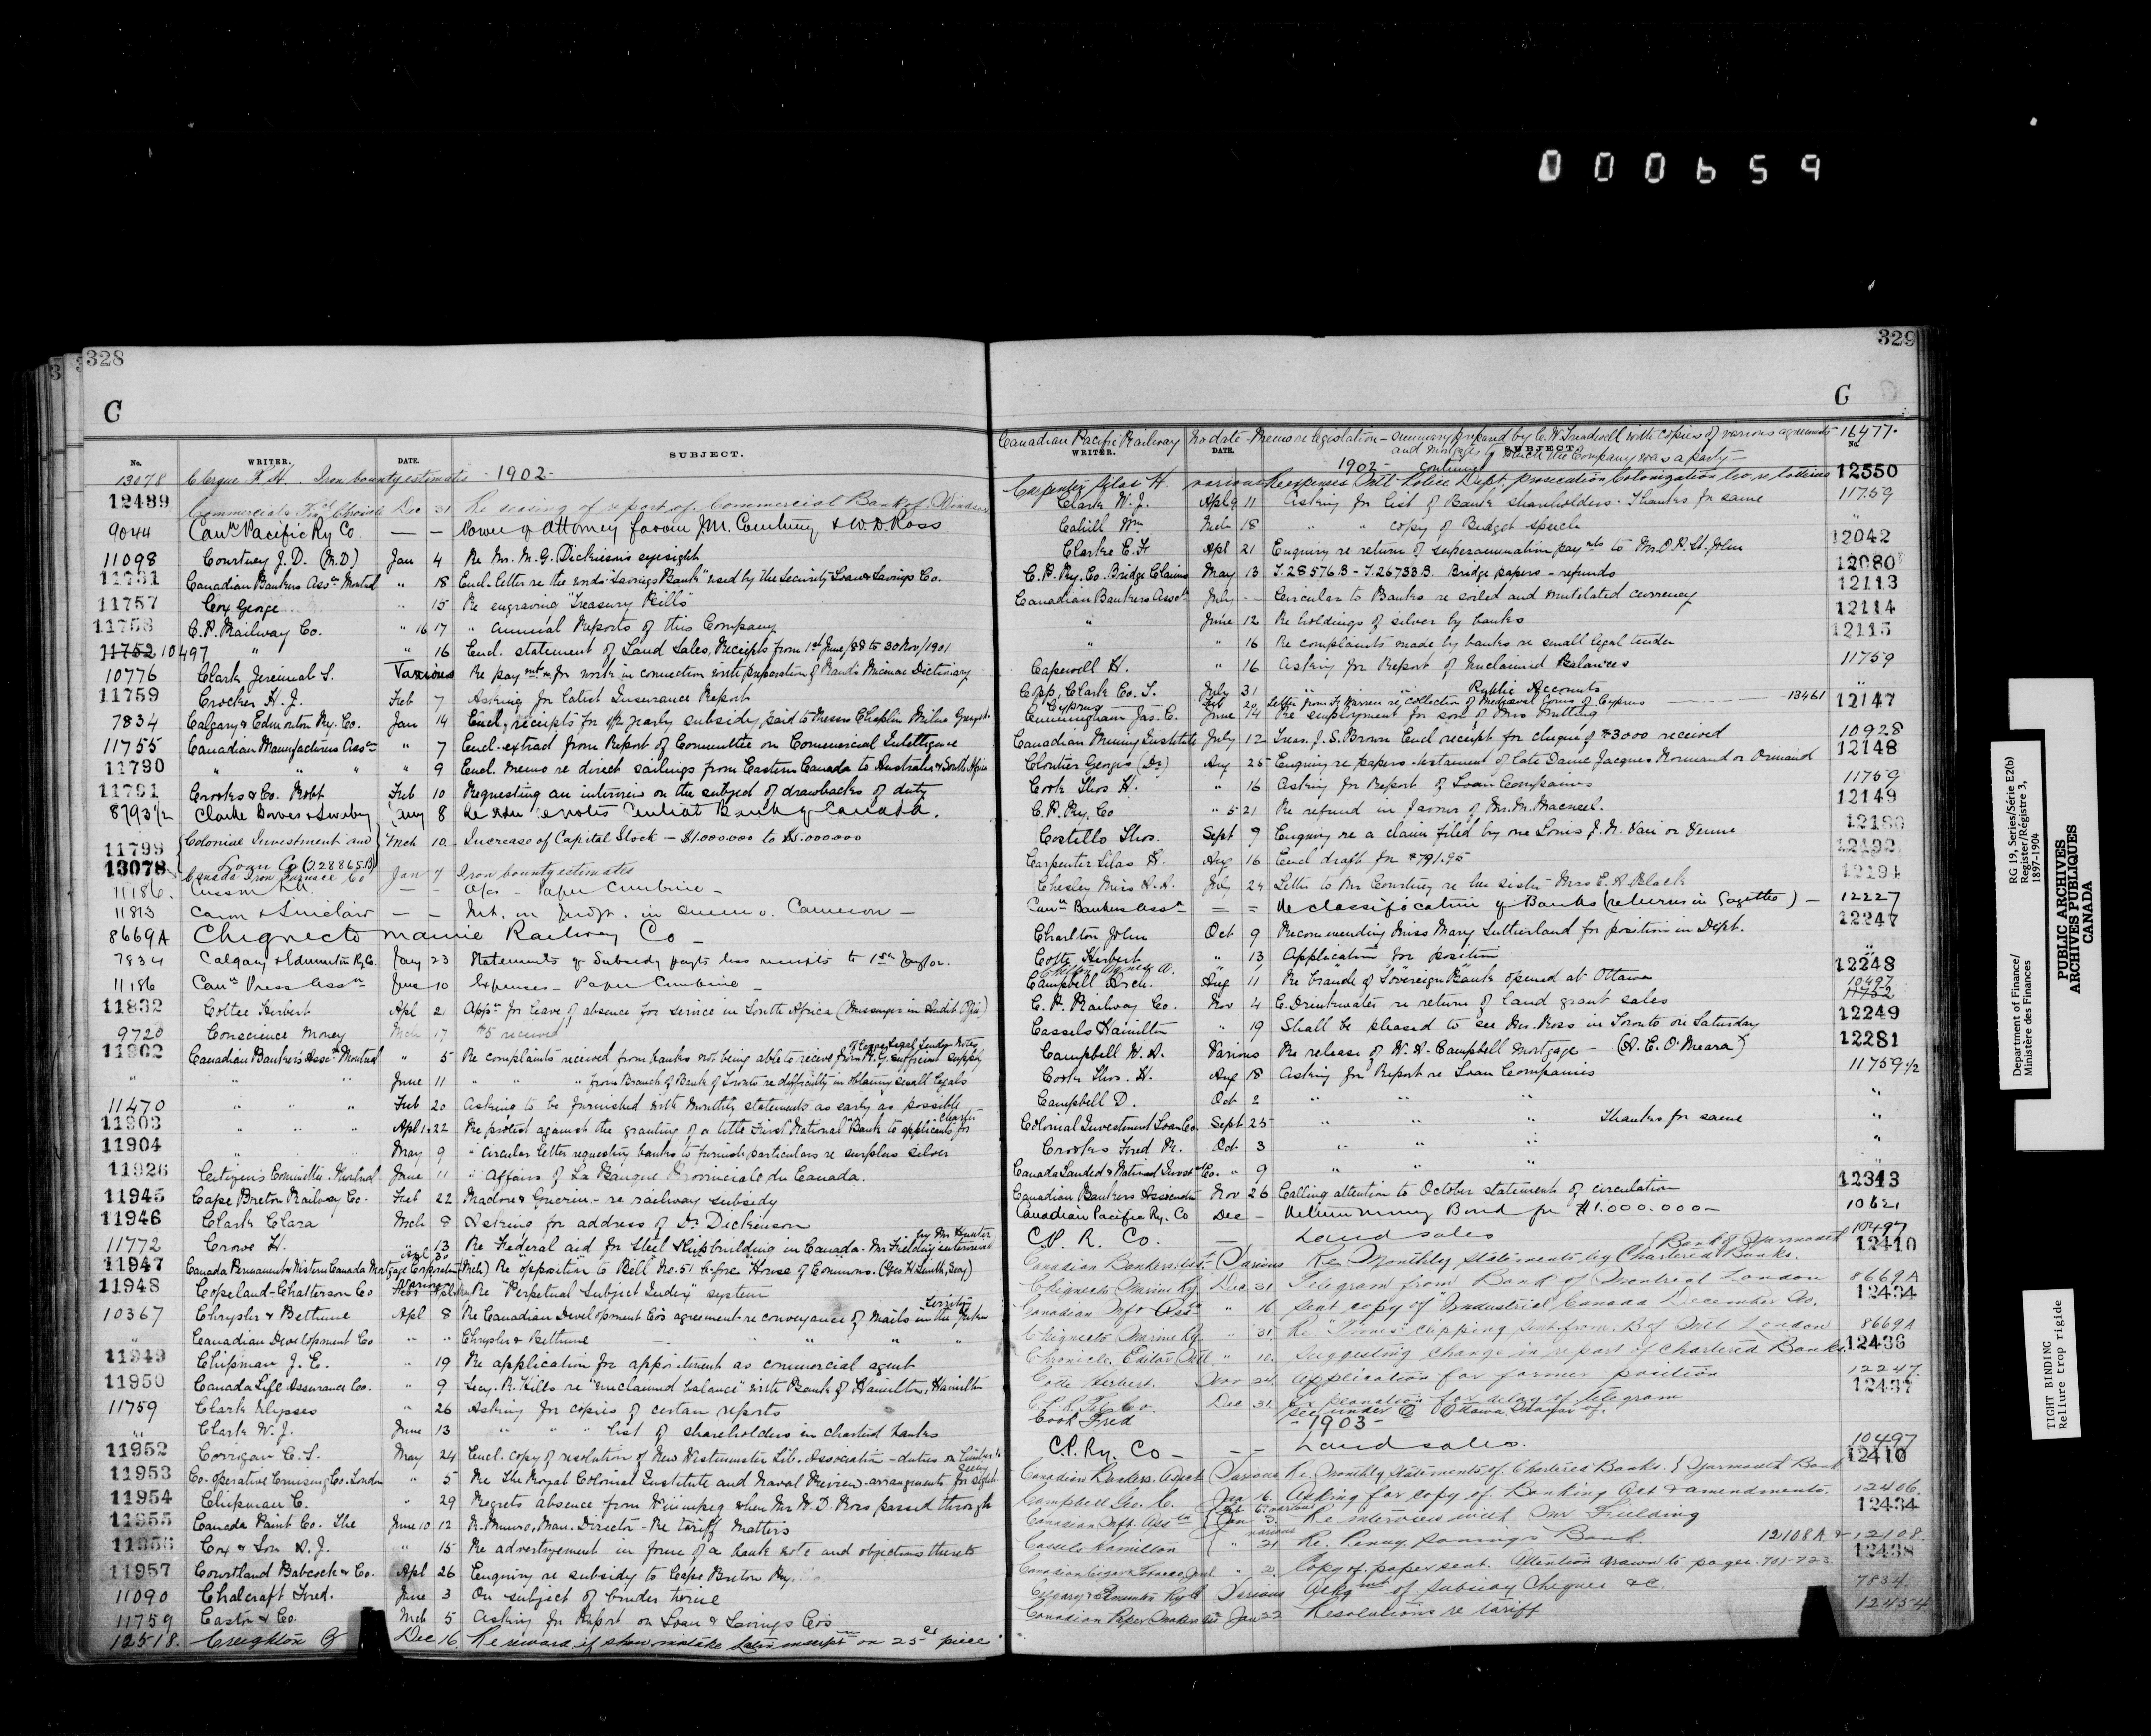 000659
328
C
No. WRITER. DATE. SUBJECT.
13078 Clergue F. H. Iron bounty estimates - 1902 -
12489 Commercial & Fin'l Chronicle Dec 31 Re issuing of report of Commercial Bank of Windsor
9044 Can'n Pacific Ry Co. — — Power of Attorney favour J.M. Courtney & W.D. Ross
11098 Courtney J.D. (M.D) Jan 4 Re Mr. M.G. Dickieson's eyesight
11731 Canadian Bankers Assn. Montreal " 18 Encl. letter re the words "Savings Bank" used by the Security Loan & Savings Co.
11757 Cox George " 15 Re engraving "Treasury Bills"
11758 C.P. Railway Co. " 16 17 " Annual Reports of this Company
11752 10497 " " 16 Encl. statement of Land Sales, Receipts from 1st June/88 to 30 Nov/1901
10776 Clark Jeremiah S. Various Re paymt. for work in connection with preparation of Rand's Micmac Dictionary
11759 Crocker H. J. Feb 7 Asking for latest Insurance Report
7834 Calgary & Edmonton Ry. Co. Jan 14 Encl. receipts for yearly subsidy, paid to Messrs Chaplin Milne Grenfell
11755 Canadian Manufacturers Assn " 7 Encl. extract from Report of Committee on Commercial Intelligence
11790 " " " " 9 Encl. memo re direct sailings from Eastern Canada to Australia & South Africa
11791 Crooks & Co. Robt Feb 10 Requesting an interview on the subject of drawbacks of duty
8793 1/2 Clarke Bowes & Swabey Jany 8 Re Dom' notes Central Bank of Canada.
11799 Colonial Investment and Loan Co (J28865B) Mch 10 Increase of Capital Stock — $1.000000 to $5.000000
13078 Canada Iron Furnace Co Jan 7 Iron bounty estimates
11186. — — Paper Combine -
11813 Caron & Sinclair — — Int. on Judgt. in Queen v. Cameron —
8669A Chignecto Marine Railway Co —
7834 Calgary & Edmonton Ry Co. Jany 23 Statements of Subsidy paid
11186 Can'n Press Assn June 10 Expenses — Paper Combine —
11832 Cottee Herbert Apl 2 Appn for leave of absence for service in South Africa (Messenger in Audit Office)
9720 Conscience Money Mch 17 $5 received
11902 Canadian Bankers Assn Montreal " 5 Re complaints received from banks not being able to receive from R.G. sufficient supply of large Legal Tender Notes
" " " June 11 " " " from Branch of Bank of Toronto re difficulty in obtaining small Legals
11470 " " " Feb 20 Asking to be furnished with monthly statements as early as possible
11903 " " " Apl 1.22 Re protest against the granting of a title First National Bank to applicants for Charter
11904 " " May 9 " circular letter requesting banks to furnish particulars re surplus silver
11926 Citizens Committee. Montreal June 11 " Affairs of La Banque Provinciale du Canada.
11945 Cape Breton Railway Co. Feb 22 Madore & Guerin - re railway subsidy
11946 Clark Clara Mch 8 Asking for address of Dr. Dickinson
11772 Crowe H. " 13 Re Federal aid for Steel Shipbuilding in Canada - Mr Fielding interviewed by Mr Hunter
11947 Canada Permanent & Western Canada Mortgage Corporation Apl 30 (Mch) Re "opposition to Bill No. 51 before House of Commons. (Geo H Smith, Secy)
11948 Copeland-Chatterson Co Various Re "Perpetual Subject Index" system
10367 Chrysler & Bethune Apl 8 Re Canadian Development Co's agreement re conveyance of mails in the Yukon Territory
" Canadian Development Co " " Chrysler & Bethune — " " "
11949 Chipman J. E. " 19 Re application for appointment as commercial agent
11950 Canada Life Assurance Co. " 9 Secy. R. Hills re "unclaimed balance" with Bank of Hamilton, Hamilton
11759 Clark Ulysses " 26 Asking for copies of certain reports
" Clark W. J. June 13 " " " list of shareholders in charted banks
11952 Corrigan C. S. May 24 Encl. copy of resolution of New Westminster Lib. Association - duties on lumber
11953 Co-operative Cruising Co. London " 5 Re The Royal Colonial Institute and Naval Review - arrangements for sight seeing
11954 Chipman C. " 29 Regrets absence from Winnipeg when Mr W. D. Ross passed through
11955 Canada Paint Co. The June 10 12 R. Munro, Man. Director - Re tariff matters
11956 Cox & Son A. J. " 15 Re advertisement in form of a bank note and objections thereto
11957 Courtland Babcock & Co. Apl 26 Enquiry re subsidy to Cape Breton Ry.
11090 Chalcraft Fred. June 3 On subject of binder twine
11759 Castn & Co. Mch 5 Asking for Report on Loan & Savings Co's
12518. Creighton G Dec 16. Re reward if show mistake Latin inscript on 25 ct piece
329
C
Canadian Pacific Railway No date - Memo re legislation - summary prepared by C.W. Treadwell with copies of various agreements - 16477.
and mortgages to which the Company was a party —
WRITER. DATE. SUBJECT. No.
1902 - continued
Carpenter Silas H. various Re expenses Mtl. Police Dept. prosecution Colonization Co. re lotteries 12550
Clark W. J. Apl 9 11 Asking for list of Bank shareholders - Thanks for same 11759
Cahill Wm Mch 18 " " copy of Budget speech "
Clarke E. F. Apl 21 Enquiry re return of superannuation paymts to Mr. O.R. St. John 12042
C. P. Ry. Co. Bridge Claims May 13 J. 28576.B - J. 26733.B. Bridge papers - refunds 12080
Canadian Bankers Assn July — Circular to Banks re soiled and mutilated currency 12113
" June 12 Re holdings of silver by banks 12114
" 16 Re complaints made by banks re small legal tender 12115
Capewell H. " 16 Asking for Report of Unclaimed Balances 11759
Copp, Clark Co. L. July 31 " " " Public Accounts "
Cyprus Feb 20 Letter from F. Warren re collection of Mediaeval Coins of Cyprus — 13461
Cunningham Jas. C. June 14 Re employment for son of Mrs Nutting 12147
Canadian Mining Institute July 12 Treas. J. S. Brown Encl receipt for cheque of $3000 received 10928
Cloutier Georges (Dr) Aug 25 Enquiry re papers - testament of late Dame Jacques Normand or Ormand 12148
Cook Thos H. " 16 Asking for Report of Loan Companies 11759
C. P. Ry. Co " 5 21 Re refund in favour of Mr. M. Maensel. 12149
Costello Thos. Sept 9 Enquiry re a claim filed by one Louis J. N. Vari or Venne 12180
Carpenter Silas H. Aug 16 Encl draft for $791.95
Chesley Miss A. A. July 24 Letter to Mr Courtney re her sister Mrs E. A Black 12194
Can'n Bankers Assn — = Re classification of Banks (returns in Gazette) — 12227
Charlton John Oct 9 Recommending Miss Mary Sutherland for position in Dept. 12247
Cotte Herbert " 13 Application for position "
Campbell Arch. Aug 11 Re branch of "Sovereign Bank" opened at Ottawa 12248
C. P. Railway Co. Nov 4 C. Drinkwater re return of land grant sales 10497 11752
Cassels Hamilton " 19 Shall be pleased to see Mr. Ross in Toronto on Saturday 12249
Campbell W. A. Various Re release of W. A. Campbell Mortgage — (A. E. O'Meara) 12281
Cook Thos. H. Aug 18 Asking for Report re Loan Companies 11759 1/2
Campbell D. Oct 2 " " " "
Colonial Investment Loan Co. Sept 25 " " " Thanks for same "
Crookes Fred W. Oct 3 " " " "
Canada Landed & National Investmt Co. " 9 " " " "
Canadian Bankers Association Nov 26 Calling attention to October statement of circulation 12343
Canadian Pacific Ry. Co Dec — Return money Bond for $1.000.000 — 10621
C.P. R. Co. — Land sales 10497
Canadian Bankers Asst. Various Re Monthly Statements by Chartered Banks. {Bank of Yarmouth 12410
Chignecto Marine Ry. Dec 31 Telegram from Bank of Montreal London 8669A
Canadian Mft Assn " 16 Sent copy of "Industrial Canada December No. 12434
Chignecto Marine Ry. " 31. Re "Times" clipping sent from B of Mtl London 8669A
Chronicle, Editor, Mtl. " 10. Suggesting change in report of Chartered Banks 12436
Cotte Herbert. Nov 24. Application for former position 12247
C.P.R. Tel Co. Dec 31. Explanation for delay of telegram 12437
Cook Fred See under O Ottawa. Mayor of.
- 1903 -
C.P. Ry. Co — — Land sales. 10497
Canadian Bankers Asst. Various Re. Monthly Statements of Chartered Banks. } Yarmouth Bank 12410
Campbell Geo. C. Jan 16. Asking for copy of Banking Act & amendments. 12406.
Canadian Mft. Assn {Jan 3. Re interview with Mr Fielding 12434
Cassels Hamilton various " 21 Re. Penny Savings Bank. 12108A & 12108.
Canadian Cigar & Tobacco Jrnl " 2. Copy of paper sent. Attention drawn to pages. 701-723 12438
Calgary & Edmonton Ry Co Various Ackgmt of Subsidy Cheques &c. 7834.
Canadian Paper Makers Ass Jan 22 Resolutions re tariff 12454
Department of Finance/
Ministère des Finances
RG 19, Series/Série E2(b)
Register/Régistre 3,
1897-1904
PUBLIC ARCHIVES
ARCHIVES PUBLIQUES
CANADA
TIGHT BINDING
Reliure trop rigide